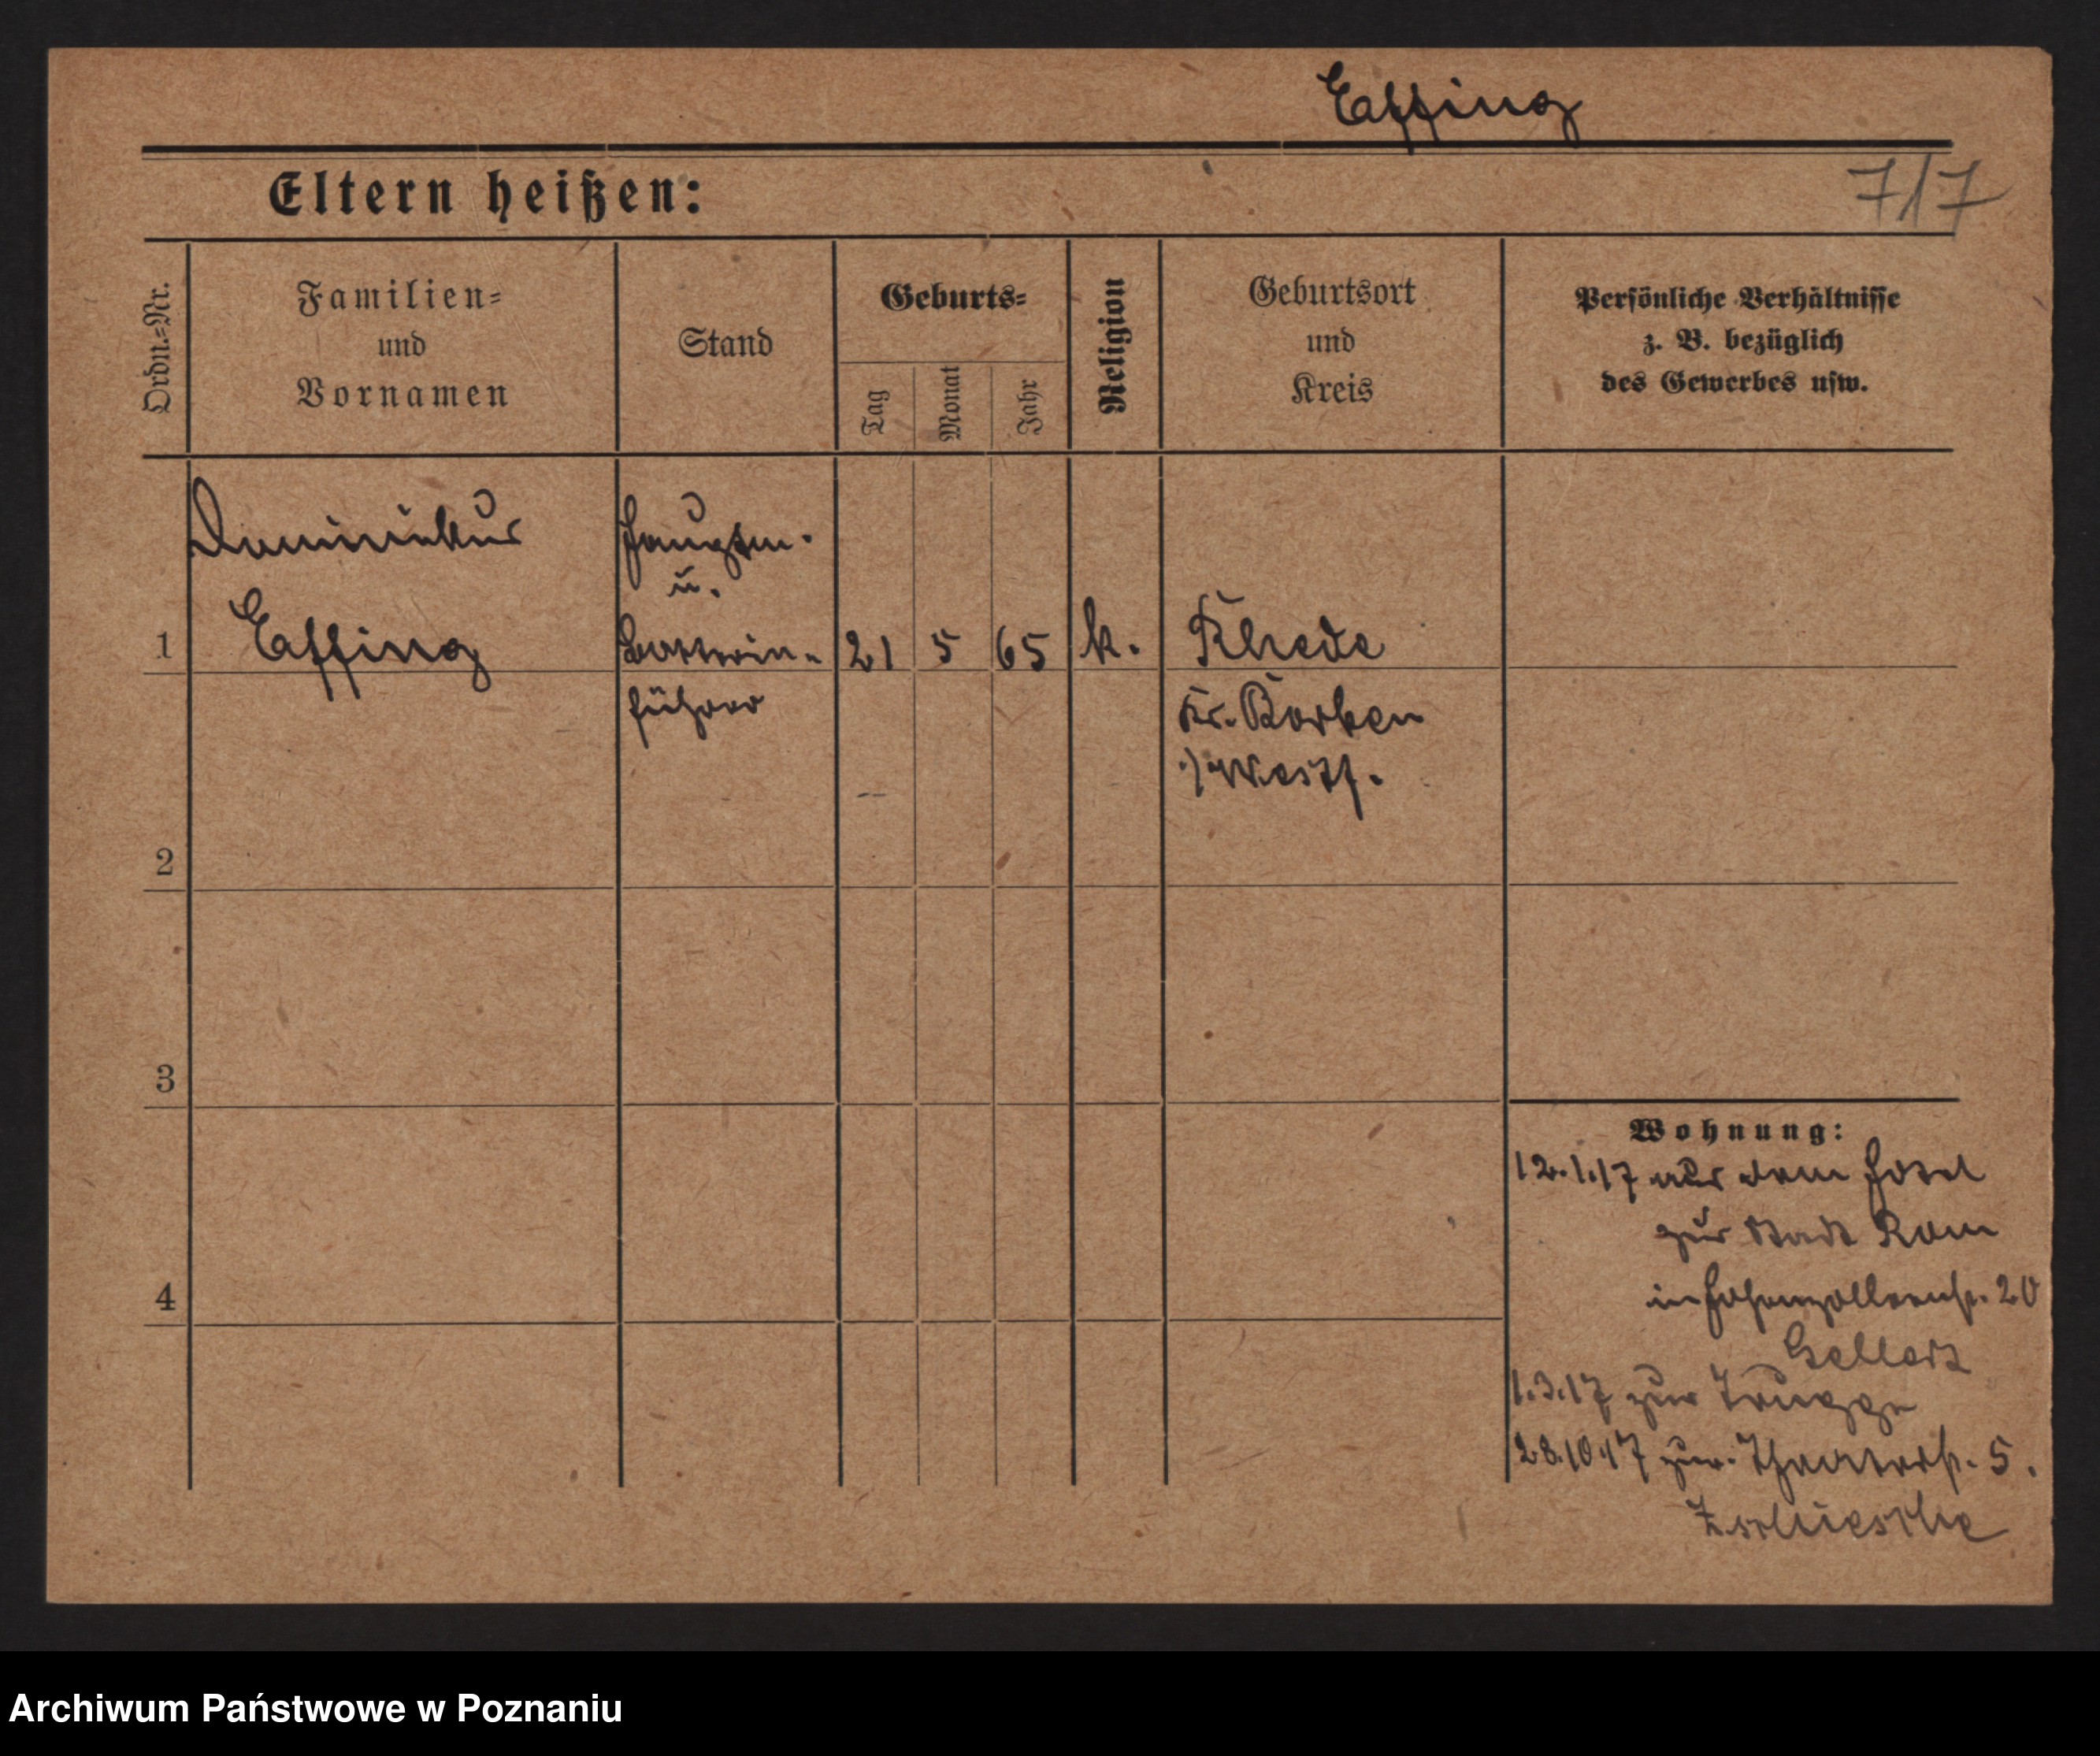 Effing
Eltern heißen:
7/7
Ordn.=Nr.
Familien=
und
Vornamen
Stand
Geburts=
Tag
Monat
Jahr
Religion
Geburtsort
und
Kreis
Persönliche Verhältnisse
z. B. bezüglich
des Gewerbes usw.
Dominikus
Effing
Hauptm.
u.
Batterie-
führer
1
21
5
65
k.
Rhede
Kr. Borken
i/Westf.
2
3
4
Wohnung:
12.1.17 aus dem Hotel
zur Stadt Rom
in Hohenzollernstr. 20
Gellert
1.3.17 zur Truppe
28.10.17 zur. Theaterstr. 5.
Zschiesche
Archiwum Państwowe w Poznaniu